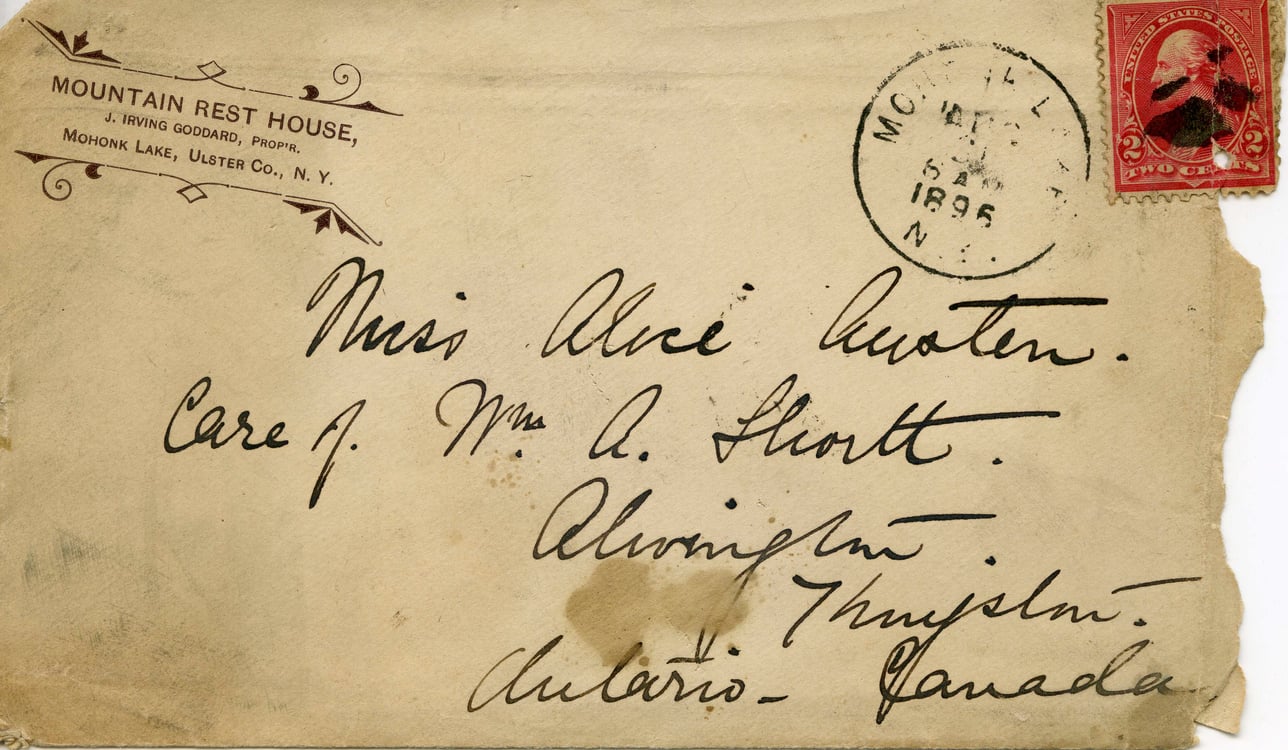 MOUNTAIN REST HOUSE,
J. IRVING GODDARD, PROP'R.
MOHONK LAKE, ULSTER CO., N. Y.
UNITED STATES POSTAGE
2 2
TWO CENTS
MOHONK LAKE
1896
N.Y.
Miss Alice Austen.
Care of. Wm. A. Shortt.
Kingston.
Ontario - Canada